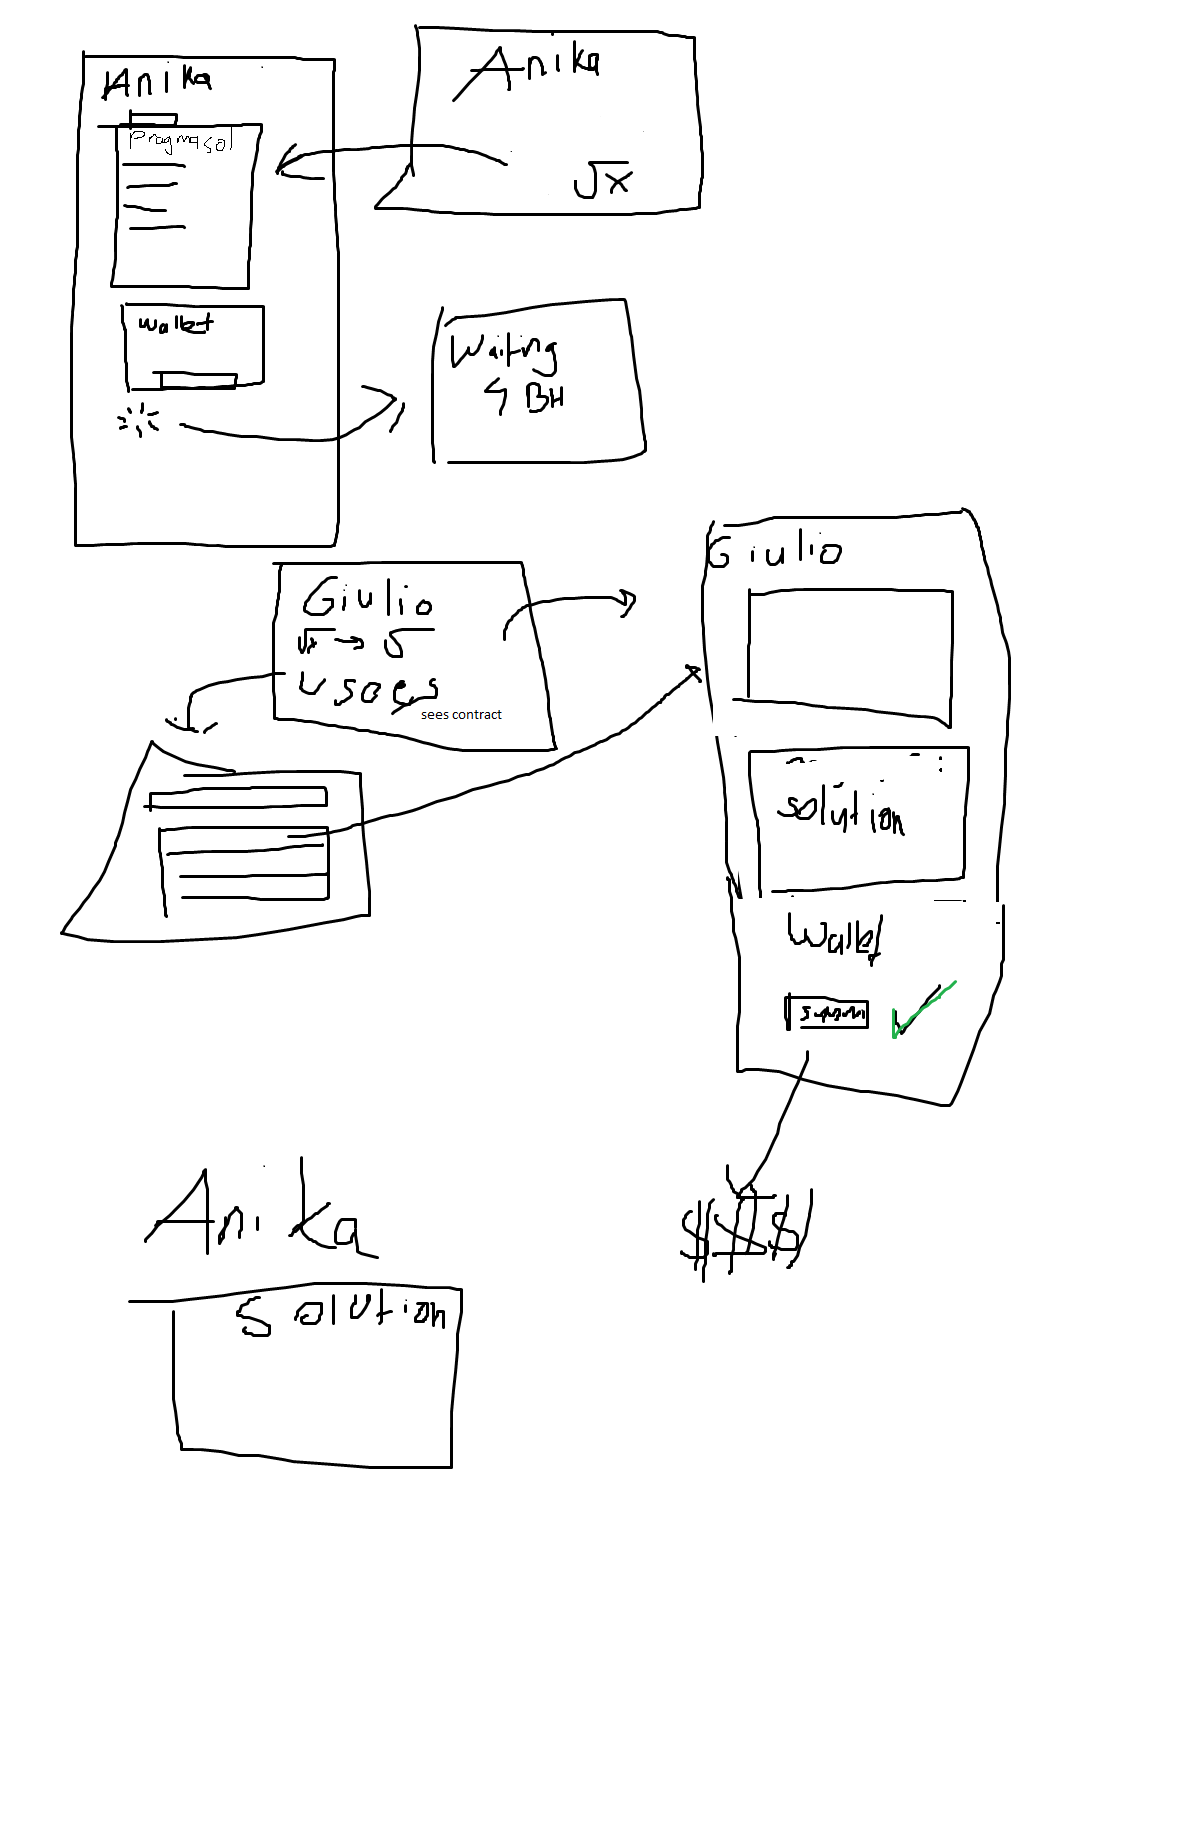 Anika
√x
Anika
Pragma sol
wallet
Waiting
4 BH
Giulio
√x → √
sees contract
Giulio
solution
Wallet
$ $
Anika
Solution